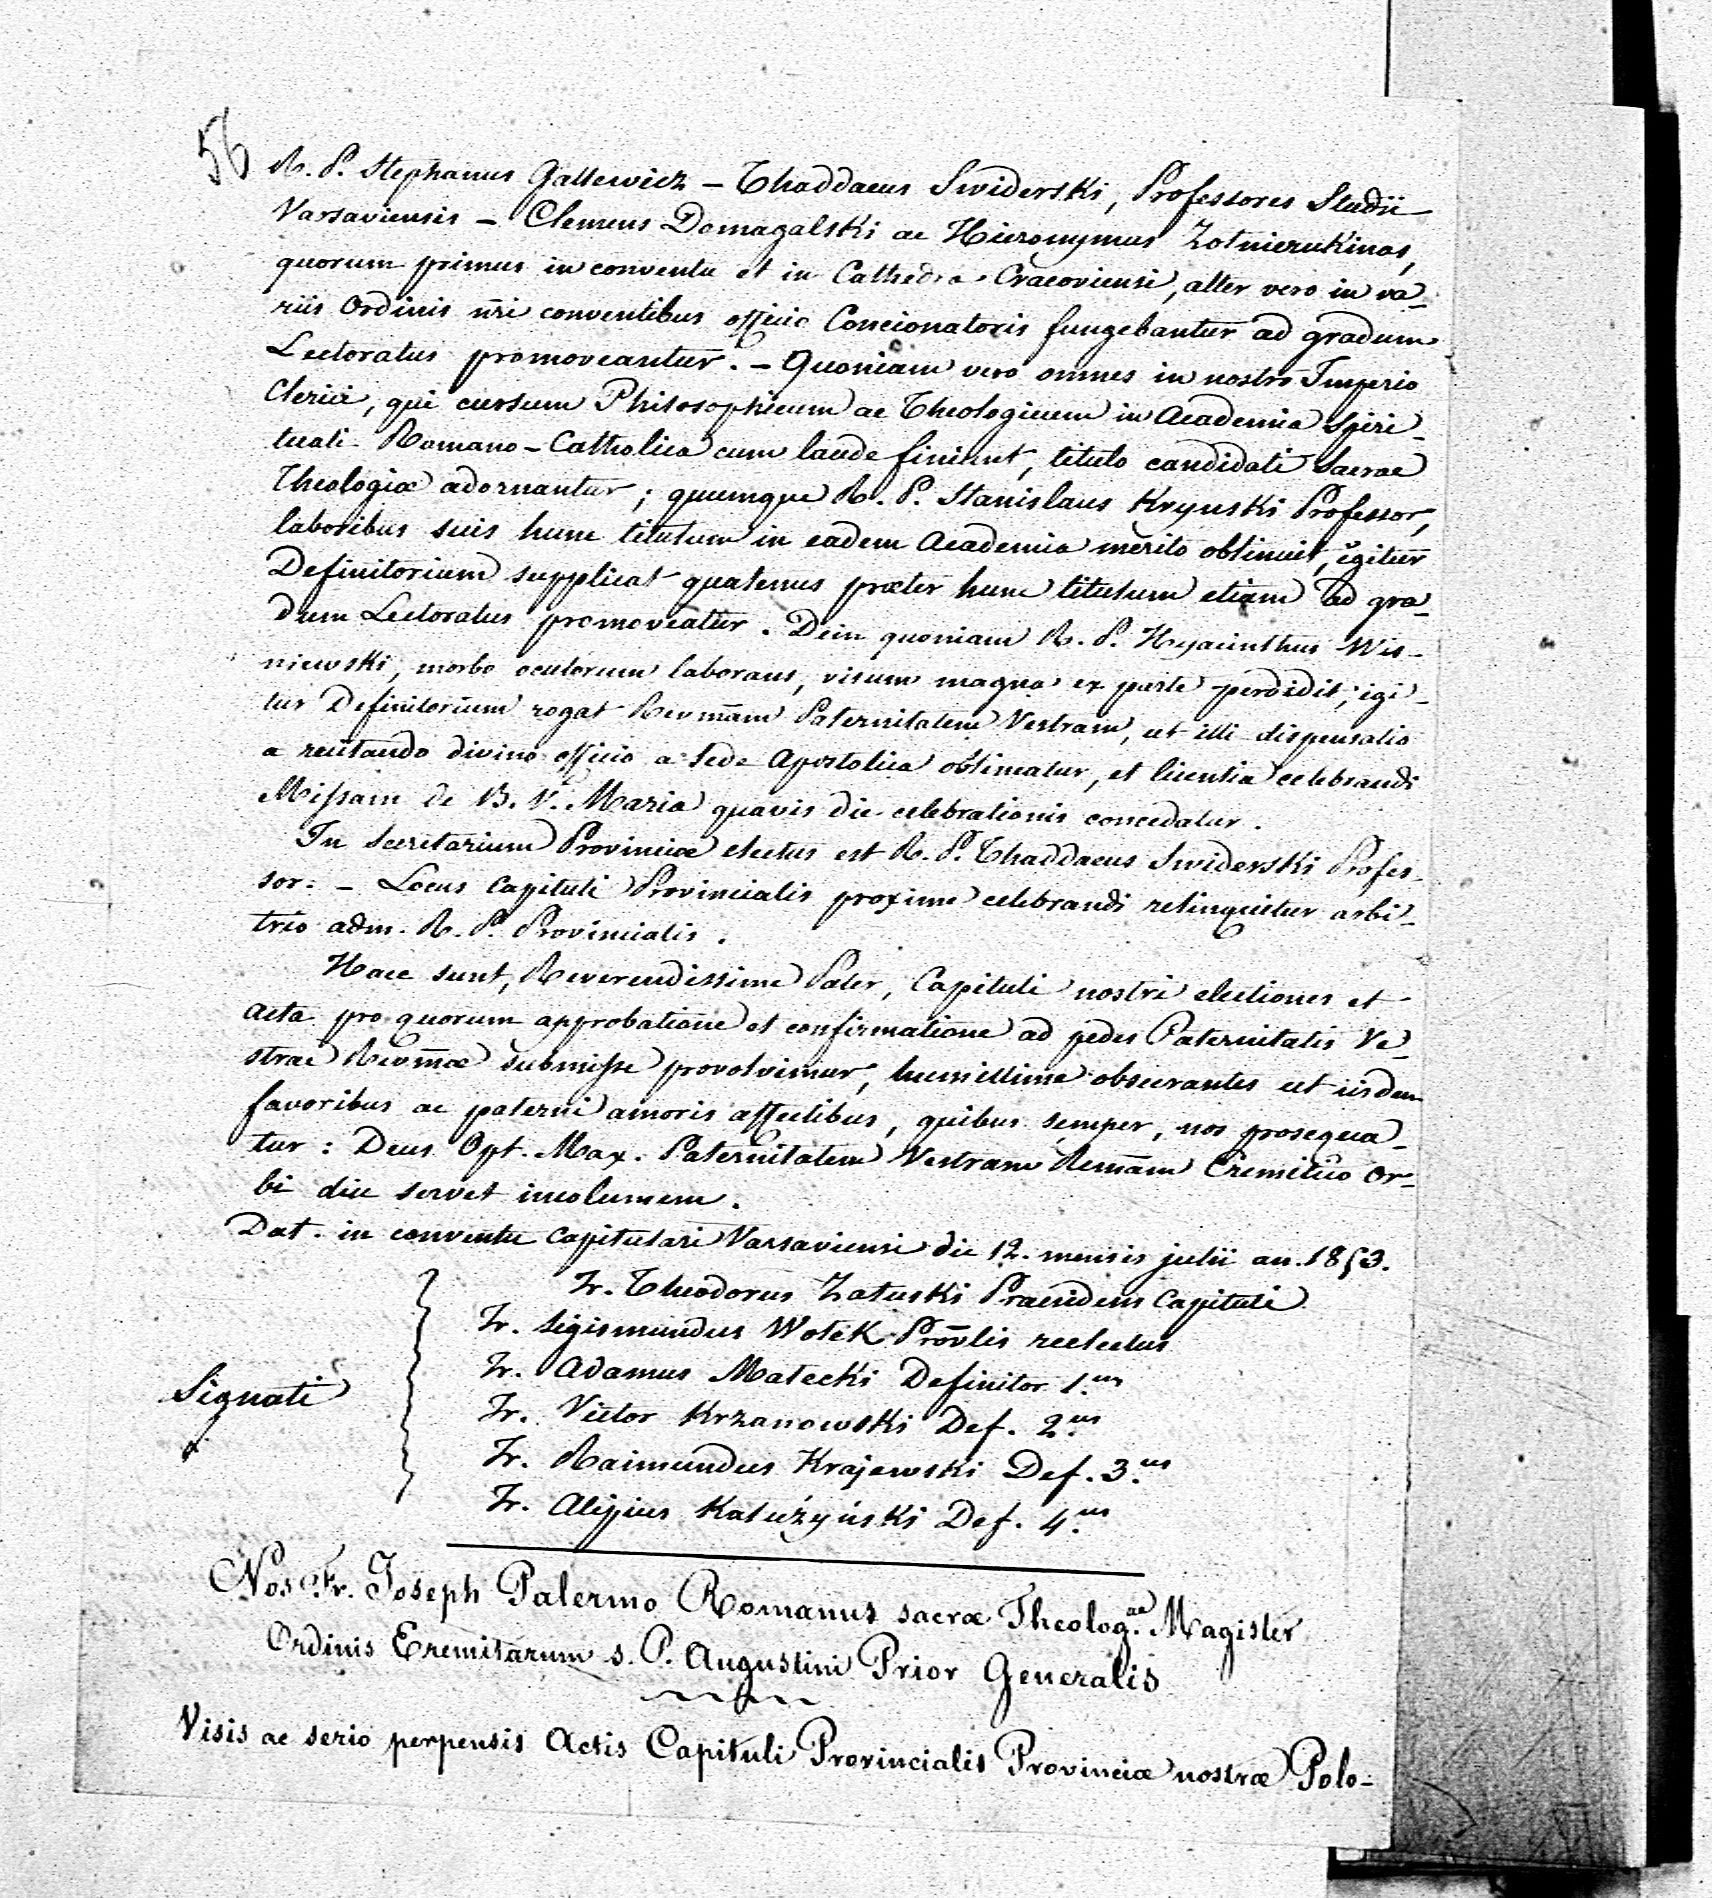 56
R. P. Stephanus Gallewicz – Thaddaeus Swiderski, Professores Studii
Varsaviensis – Clemens Domagalski ac Hieronymus Zołnierukinas,
quorum primus in conventu et in Cathedra Cracoviensi, alter vero in va-
riis Ordinis nri conventibus officio Concionatoris fungebantur ad gradum
Lectoratus promoveantur. – Quoniam vero omnes in nostro Imperio
Clerici, qui cursum Philosophicum ac Theologicum in Academia Spiri-
tuali Romano-Catholica cum laude finiunt, titulo candidati Sacrae
Theologiæ adornantur; quumque R. P. Stanislaus Krynski Professor,
laboribus suis hunc titulum in eadem Academia merito obtinuit, igitur
Definitorium supplicat quatenus præter hunc titulum etiam ad gra-
dum Lectoratus promoveatur. Dein quoniam R. P. Hyacinthus Wis-
niewski, morbo oculorum laborans, visum magna ex parte perdidit, igi-
tur Definitorium rogat Revmam Paternitatem Vestram, ut illi dispensatio
a recitando divino officio a Sede Apostolica obtineatur, et licentia celebrandi
Missam de B. V. Maria quavis die celebrationis concedatur.
In Secretarium Provinciæ electus est R. P. Thaddaeus Swiderski Profes-
sor. – Locus Capituli Provincialis proxime celebrandi relinquitur arbi-
trio adm. R. P. Provincialis.
Haec sunt, Reverendissime Pater, Capituli nostri electiones et
acta pro quorum approbatione et confirmatione ad pedes Paternitatis Ve-
strae Revmæ submisse provolvimur, humillime obsecrantes ut iisdem
favoribus ac paterni amoris affectibus, quibus semper, nos prosequa-
tur: Deus Opt. Max. Paternitatem Vestram Remam Eremitico or-
bi diu servet incolumem.
Dat. in conventu Capitulari Varsaviensi die 12. mensis julii an. 1853.
Fr. Theodorus Załuski Praesidens Capituli
Fr. Sigismundus Wołek Provlis reelectus
Fr. Adamus Małecki Definitor 1.us
Signati
Fr. Victor Krzanowski Def. 2.us
Fr. Raimundus Krajewski Def. 3.us
Fr. Alipius Kałużyński Def. 4.us
Nos Fr. Joseph Palermo Romanus sacræ Theolog.ae Magister
Ordinis Eremitarum s. P. Augustini Prior Generalis
Visis ac serio perpensis Actis Capituli Provincialis Provinciæ nostræ Polo-